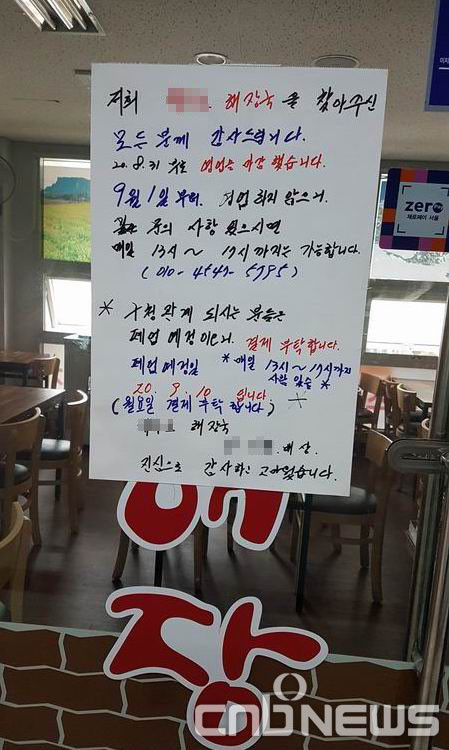 저희 해장국을 찾아주신
모든 분께 감사드립니다.
20. 8. 31 부로 영업을 마감 했습니다.
9월 1일 부터. 영업 하지 않으며.
문의 사항 있으시면
매일 13시 ~ 17시 까지는 가능합니다.
(010-4547-5795)
* 관계 되시는 분들은
폐업 예정이오니. 결제 부탁합니다.
폐업예정일 * 매일 13시 ~ 17시까지
사람 있음 *
20. 9. 10 입니다
(월요일 결제 부탁 합니다) *
해장국
배상.
진심으로 감사하고 고마웠습니다.
zero
제로페이 서울
해
장
CNBNEWS